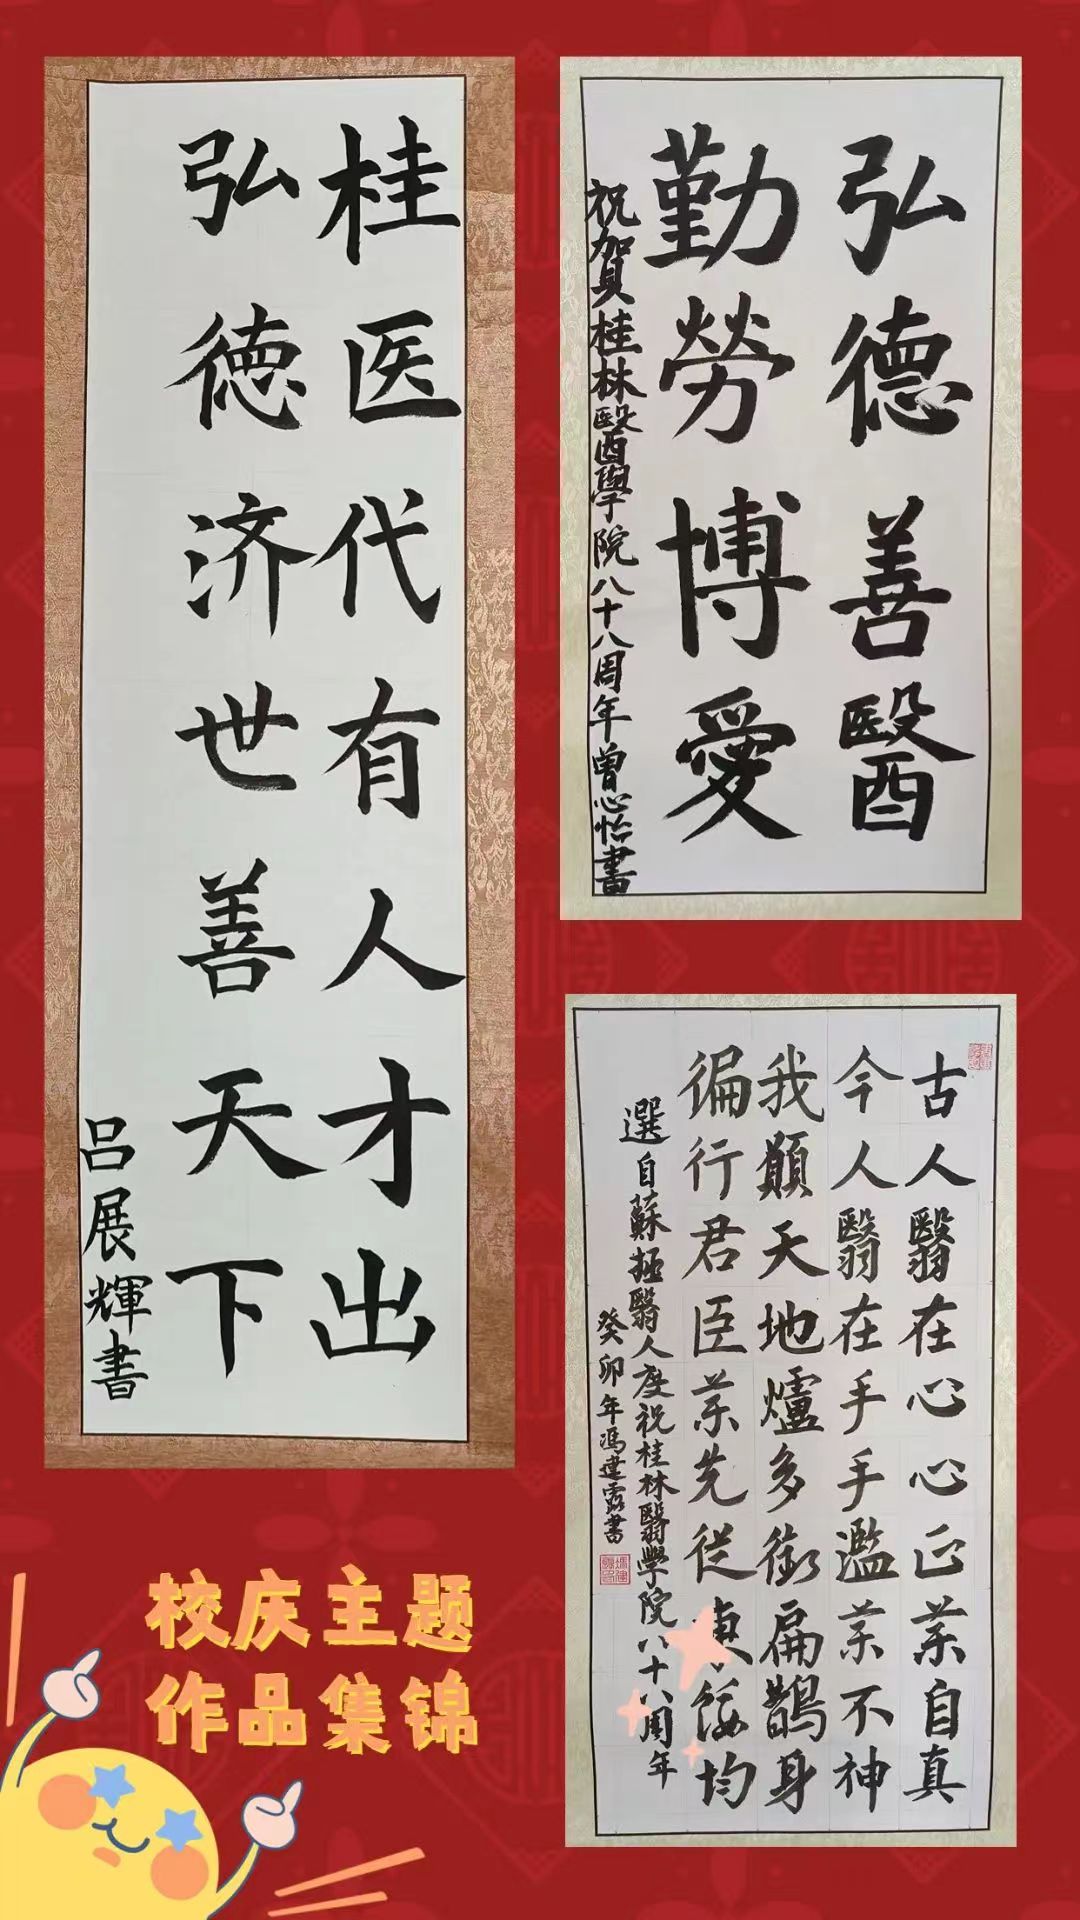 桂医代有人才出
弘德济世善天下
吕展輝書
弘德善醫
勤勞博愛
祝賀桂林醫學院八十八周年曾心怡書
古人毉在心心正药自真
今人毉在手手濫药不神
我願天地爐多衔扁鵲身
徧行君臣药先從凍餒均
選自蘇拯毉人慶祝桂林毉學院八十八周年
癸卯年馮建霞書
校庆主题
作品集锦